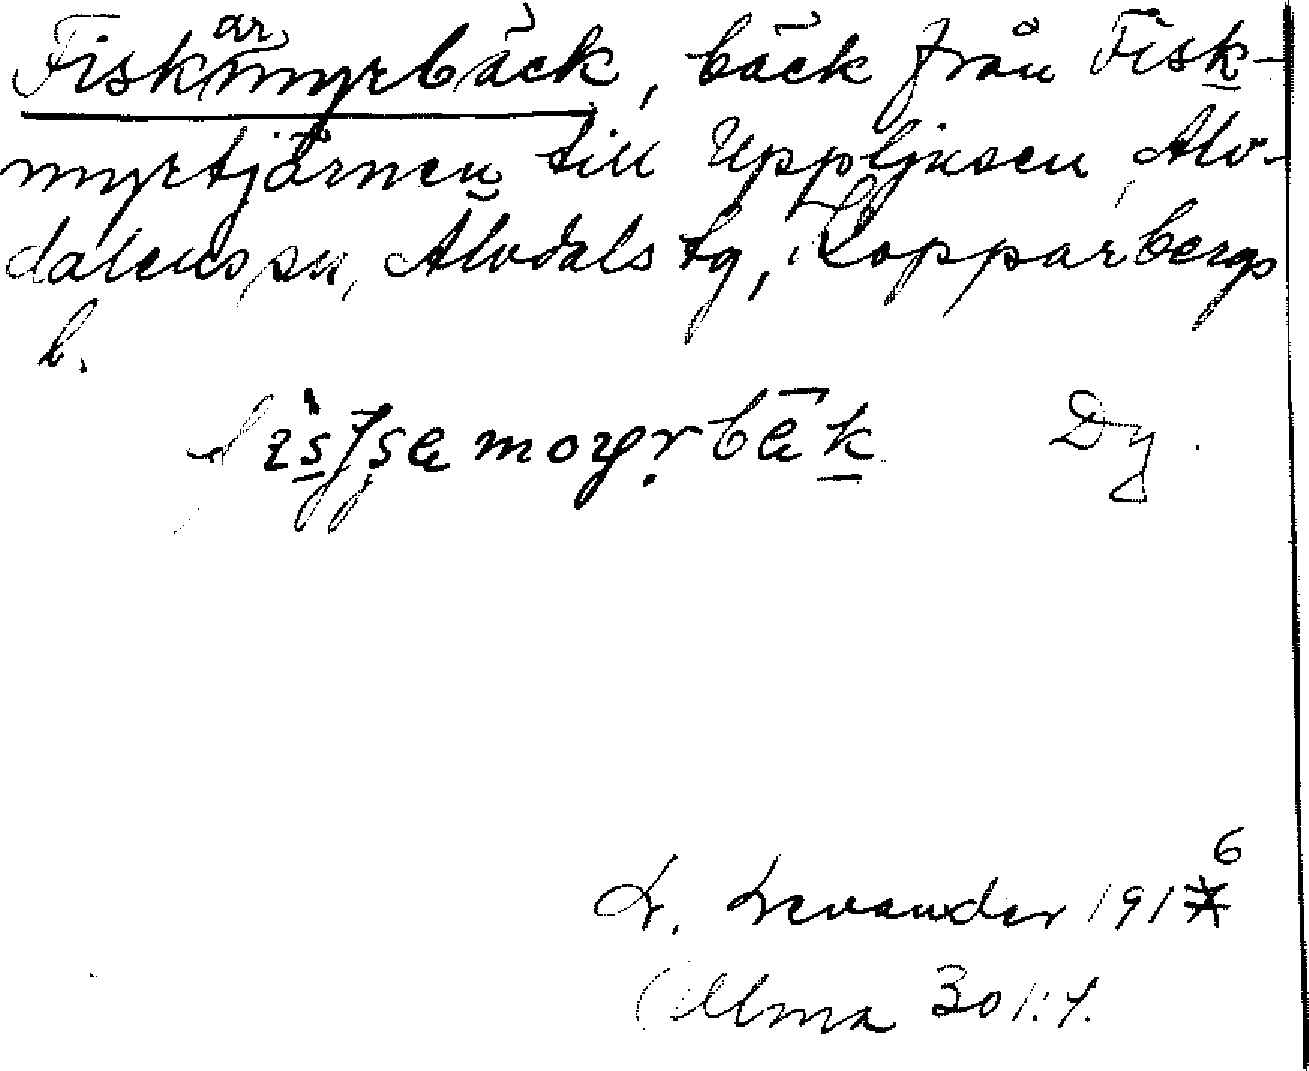 Fiskarmyrbäck, bäck från Fisk-
myrtjärnen till Uppljusen, Älv-
dalens sn, Älvdals tg, Kopparbergs
l.
Dy.
L. Levander 1916
Ulma 301:4.